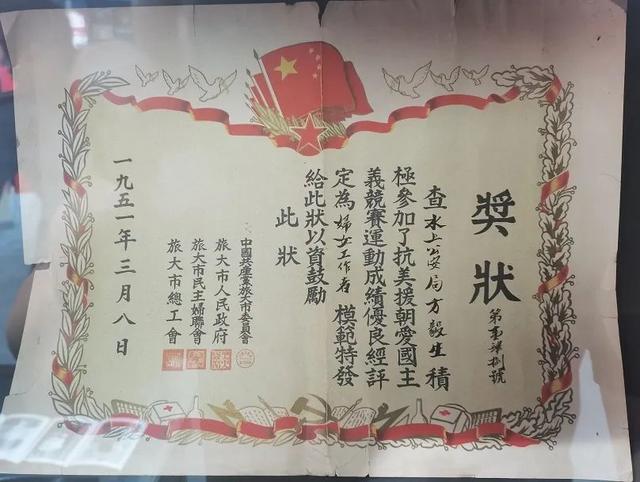 獎狀
第事業捌號
查水上公安局方毅生積
極參加了抗美援朝愛國主
義競賽運動成績優良經評
定為婦女工作者模範特發
給此狀以首鼓勵
此狀
中國共產黨旅大市委員會
旅大市人民政府
旅大市民主婦聯會
旅大市總工會
一九五一年三月八日